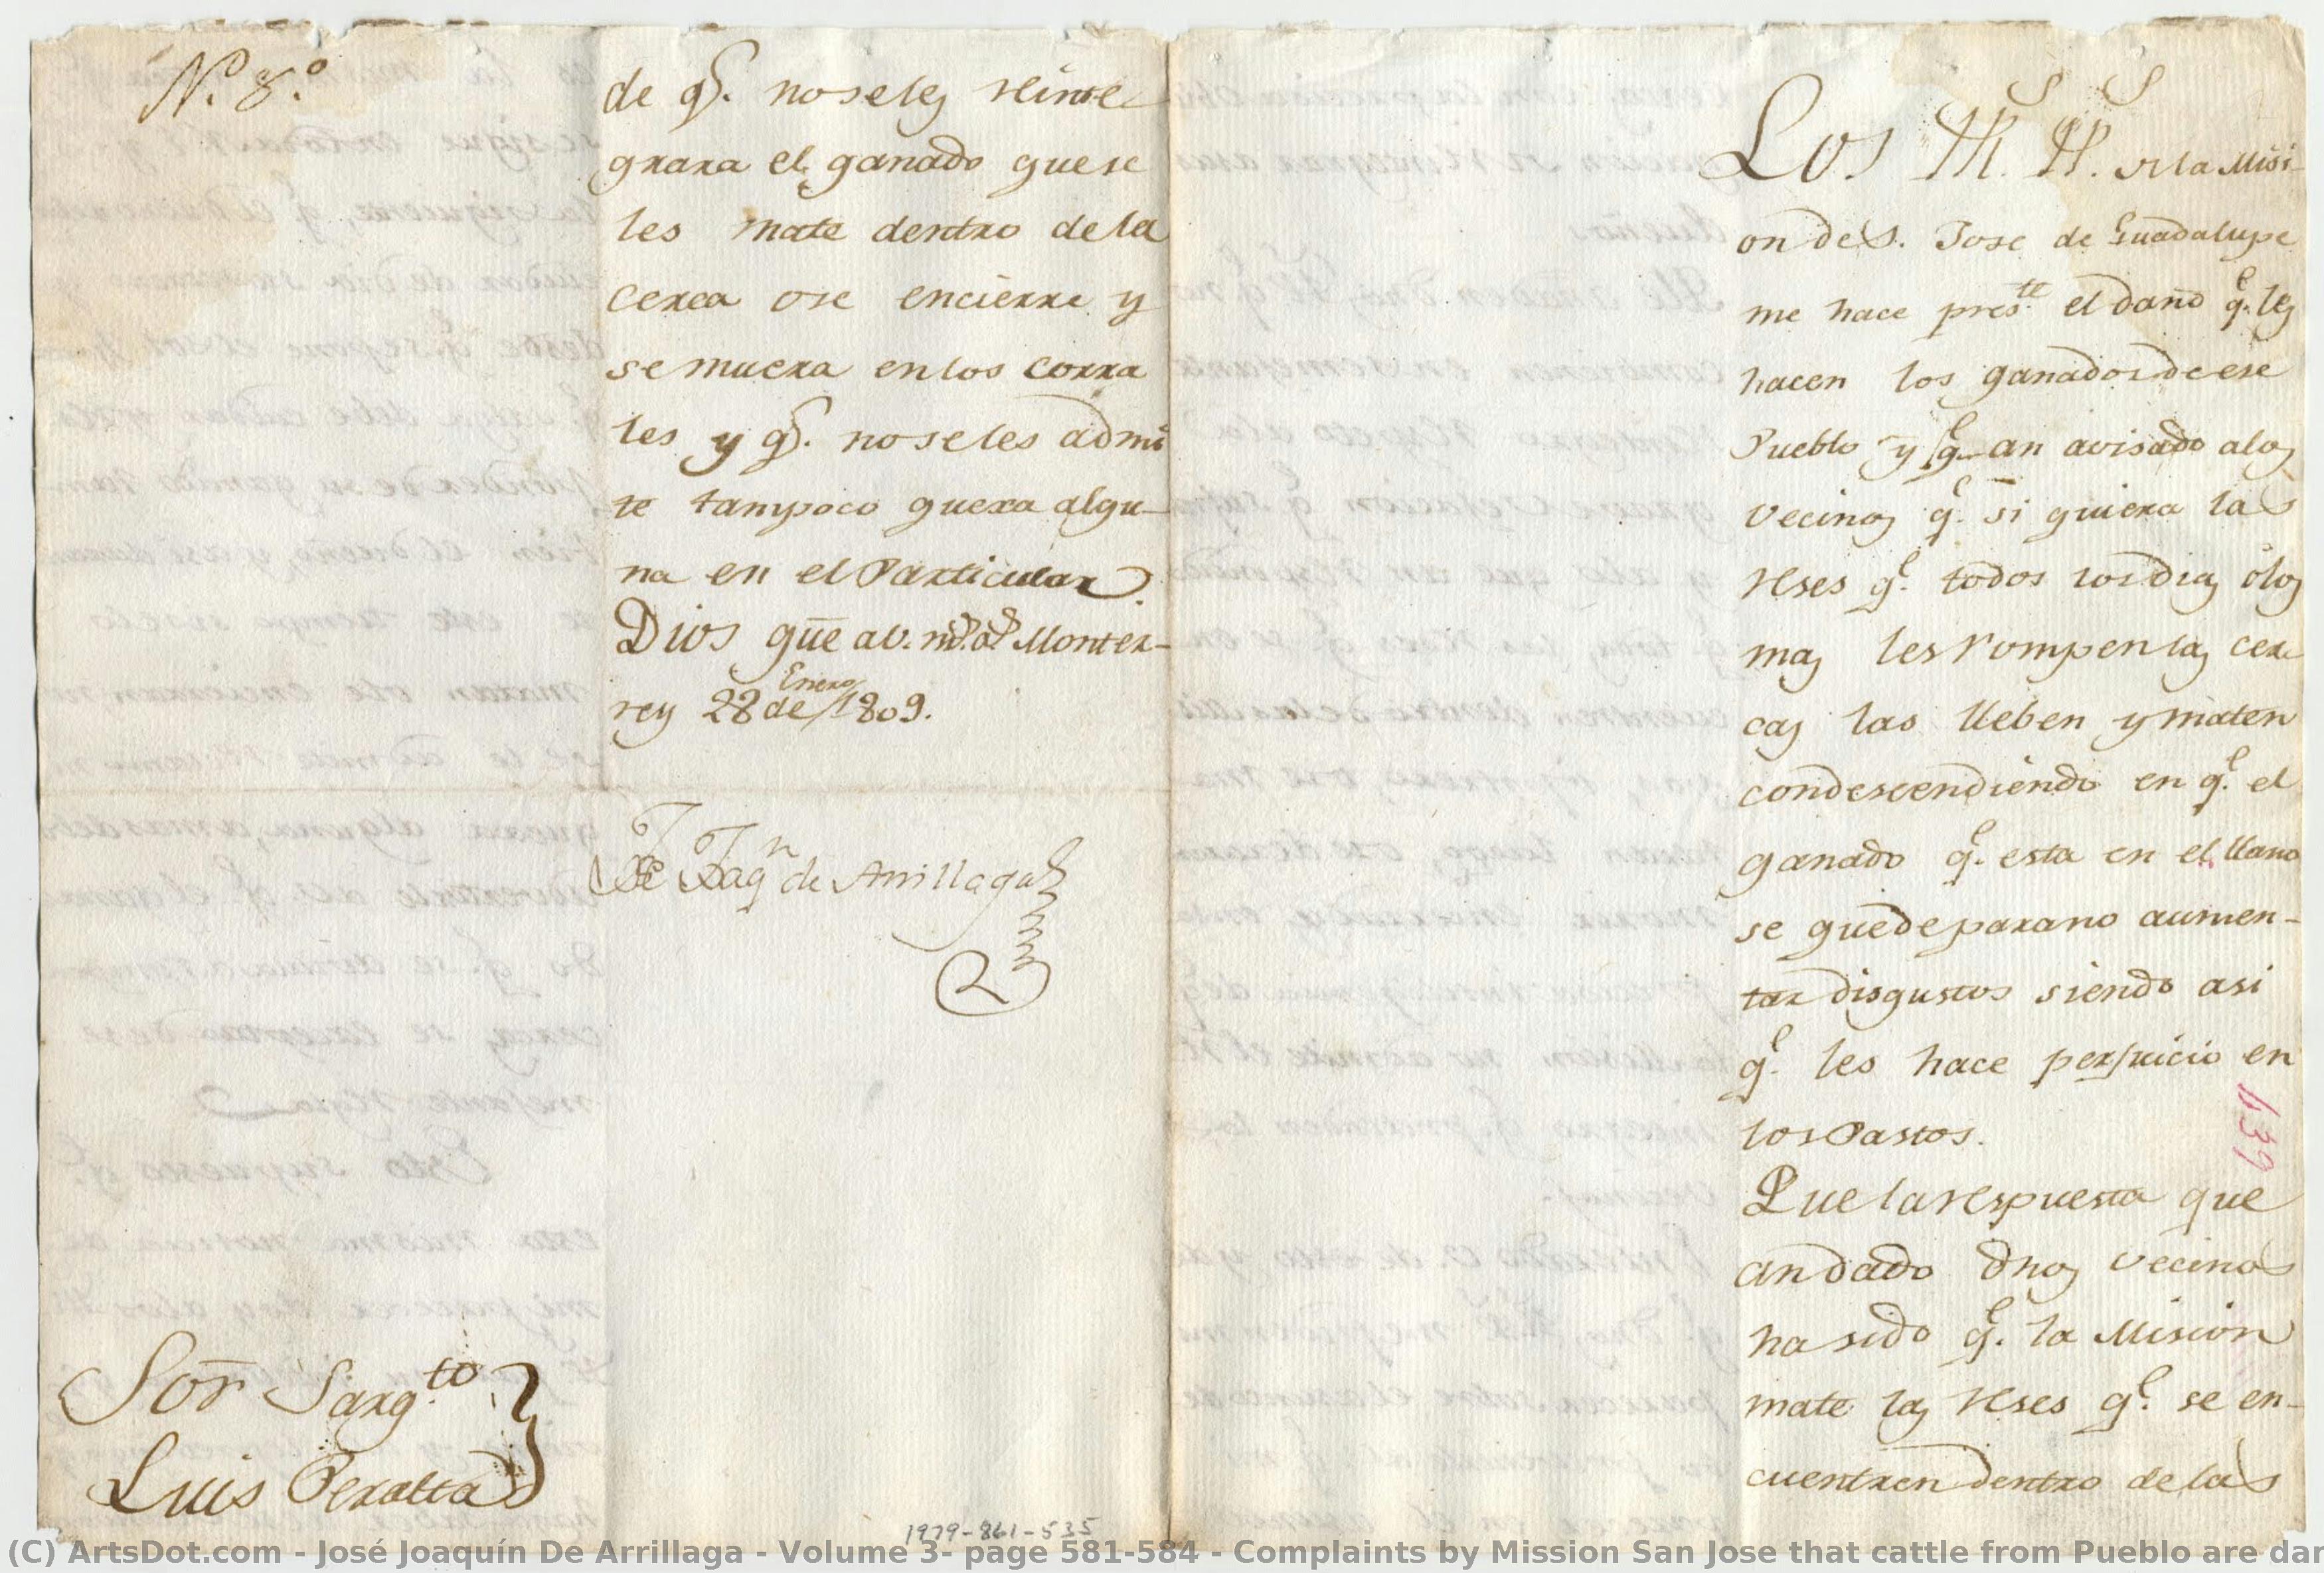 Nº. 8º.
de q.e no se les reinte
grara el ganado que se
les mate dentro de la
cerca o se encierre y
se muera en los corra
les y q.e no se les admi
te tampoco quexa algu-
na en el Particular.
Dios gūe a v. m.s a.s Monter-
rey 28 de Enero 1809.
Jẽ Joaq.n de Arrillaga
Sor̃ Sarg.to
Luis Peralta
1979-861-535
Los PP.s PP.s de la Misi
on de S. Jose de Guadalupe
me hace pres.te el daño q.e les
hacen los ganados de ese
Pueblo y q.e an avisado a los
vecinos q.e si quiera las
reses q.e todos los dias o los
mas les rompen las cer
cas las lleben y maten
condescendiendo en q.e el
ganado q.e esta en el llano
se quede para no aumen-
tar disgustos siendo asi
q.e les hace perjuicio en
los Pastos.
Que la respuesta que
an dado dhos vecinos
ha sido q.e la Mision
mate las reses q.e se en-
cuentren dentro de las
139
(C) ArtsDot.com - José Joaquín De Arrillaga - Volume 3- page 581-584 - Complaints by Mission San Jose that cattle from Pueblo are dar